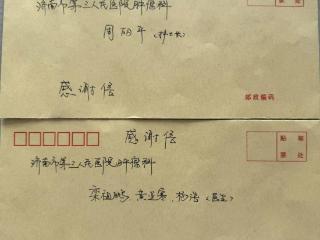 济南市第三人民医院肿瘤科
周丽平 (护士长)
感谢信
邮政编码
感谢信
贴 邮
票 处
济南市第三人民医院肿瘤科
栾祖鹏 黄亚寒 杨浩 (医生)